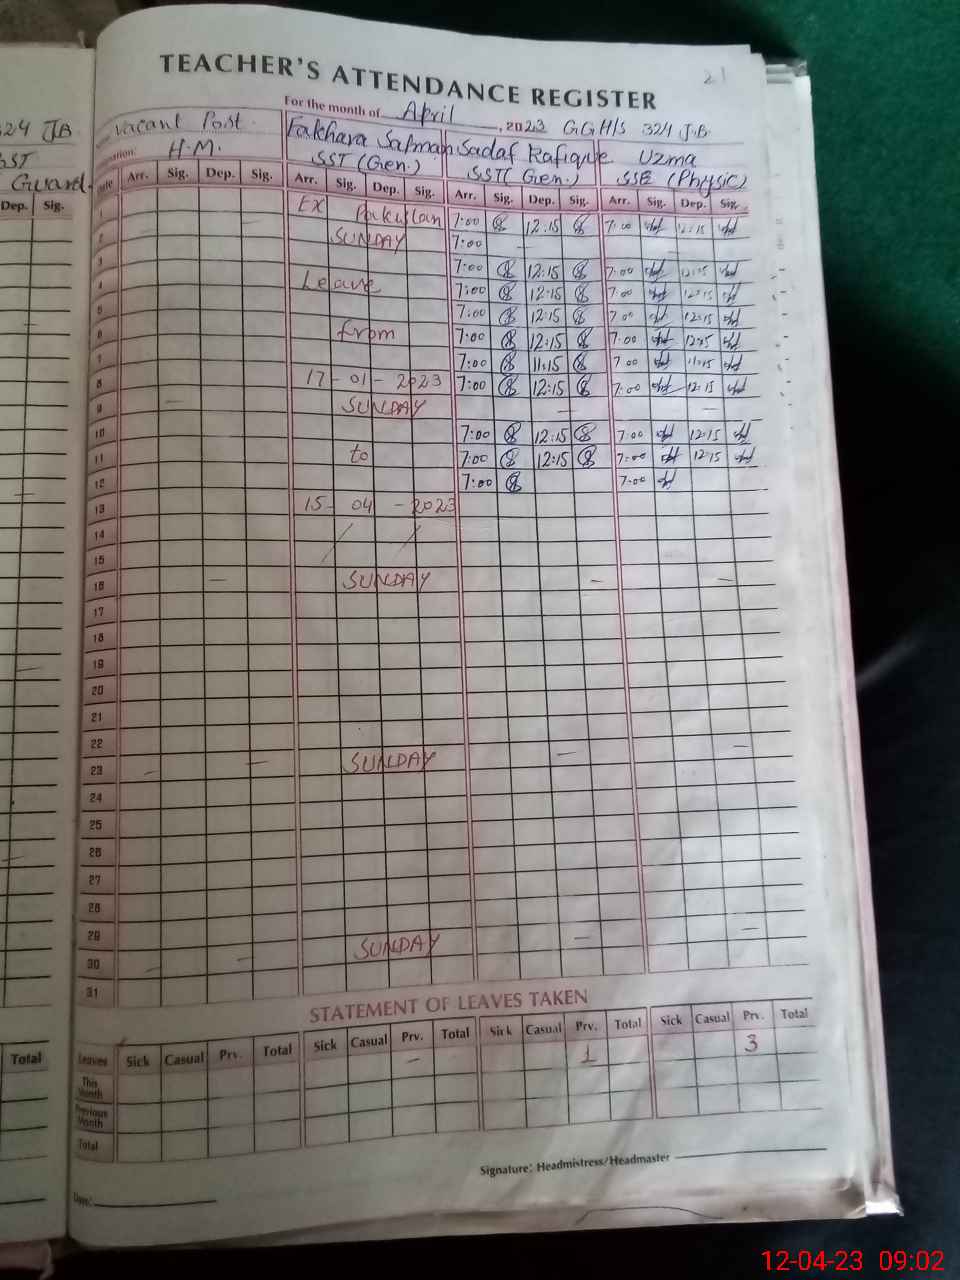 21
TEACHER'S ATTENDANCE REGISTER
For the month of April, 2023 GGH/S 324 J.B.
324 JB
Vacant Post. Fakhara Salman Sadaf Rafique Uzma
H.M. SST (Gen.) SST (Gen.) SSE (Physic)
Guard
Dep. Sig.
Date Arr. Sig. Dep. Sig. Arr. Sig. Dep. Sig. Arr. Sig. Dep. Sig. Arr. Sig. Dep. Sig.
1 EX Pakistan 7:00 12:15 7:00 12:15
2 SUNDAY 7:00 —
3 7:00 12:15 7:00 12:15
4 Leave 7:00 12:15 7:00 12:15
5 7:00 12:15 7:00 12:15
6 from 7:00 12:15 7:00 12:15
7 7:00 11:15 7:00 11:15
8 17-01-2023 7:00 12:15 7:00 12:15
9 — SUNDAY — —
10 7:00 12:15 7:00 12:15
11 to 7:00 12:15 7:00 12:15
12 7:00 7:00
13 15-04-2023
14
15
16 — SUNDAY — —
17
18
19
20
21
22
23 — — SUNDAY — —
24
25
26
27
28
29
30 — — SUNDAY — —
31
STATEMENT OF LEAVES TAKEN
Total
Leaves Sick Casual Prv. Total Sick Casual Prv. Total Sick Casual Prv. Total Sick Casual Prv. Total
This Month — 1 3
Previous Month
Total
Signature: Headmistress/Headmaster
Date:
12-04-23 09:02